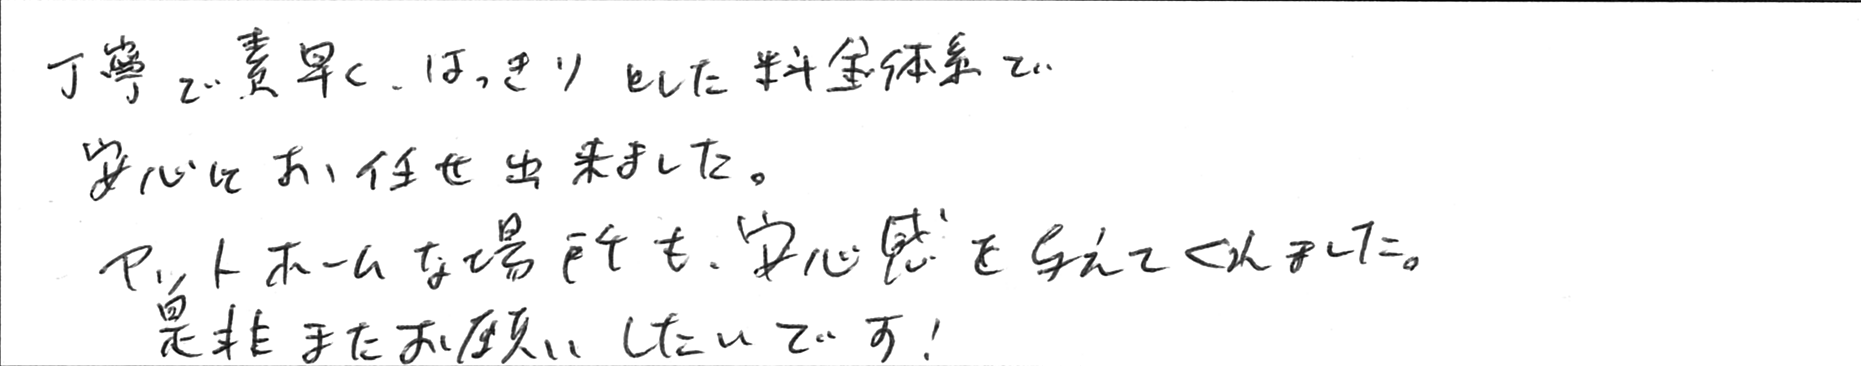 丁寧で責早く、はっきりとした料金体系で
安心してお任せ出来ました。
アットホームな場所も、安心感を与えてくれました。
是非またお願いしたいです!